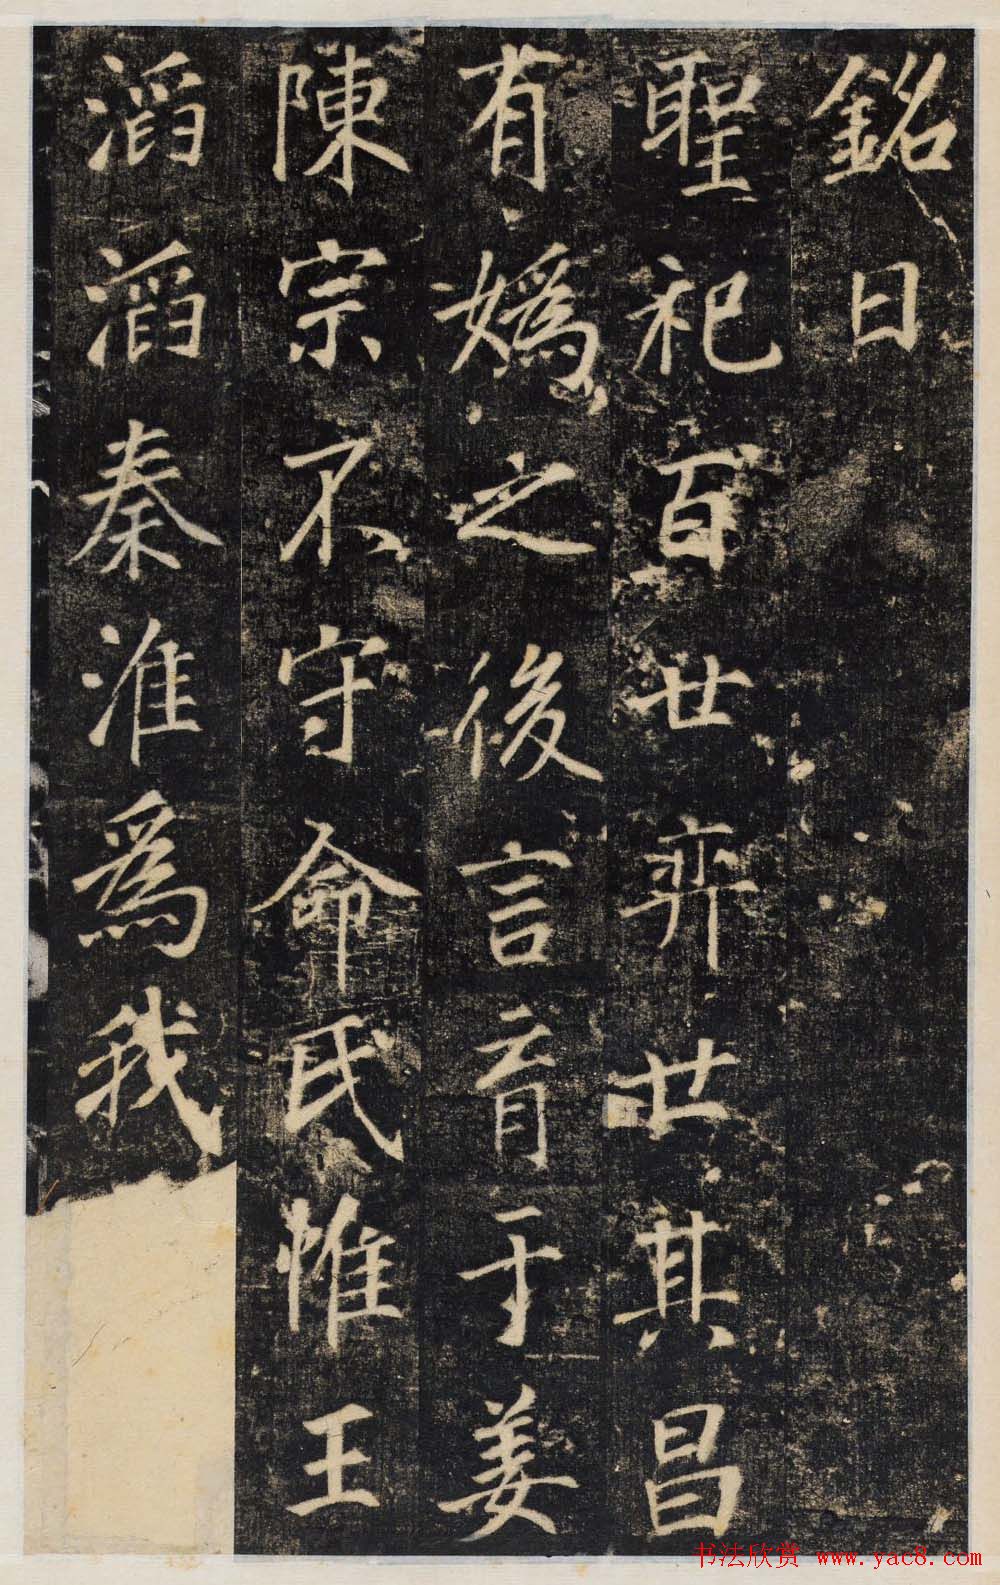 銘曰
聖祀百世弈世其昌
有嬀之後言育于姜
陳宗不守命氏惟王
滔滔秦淮爲我
书法欣赏 www.yac8.com